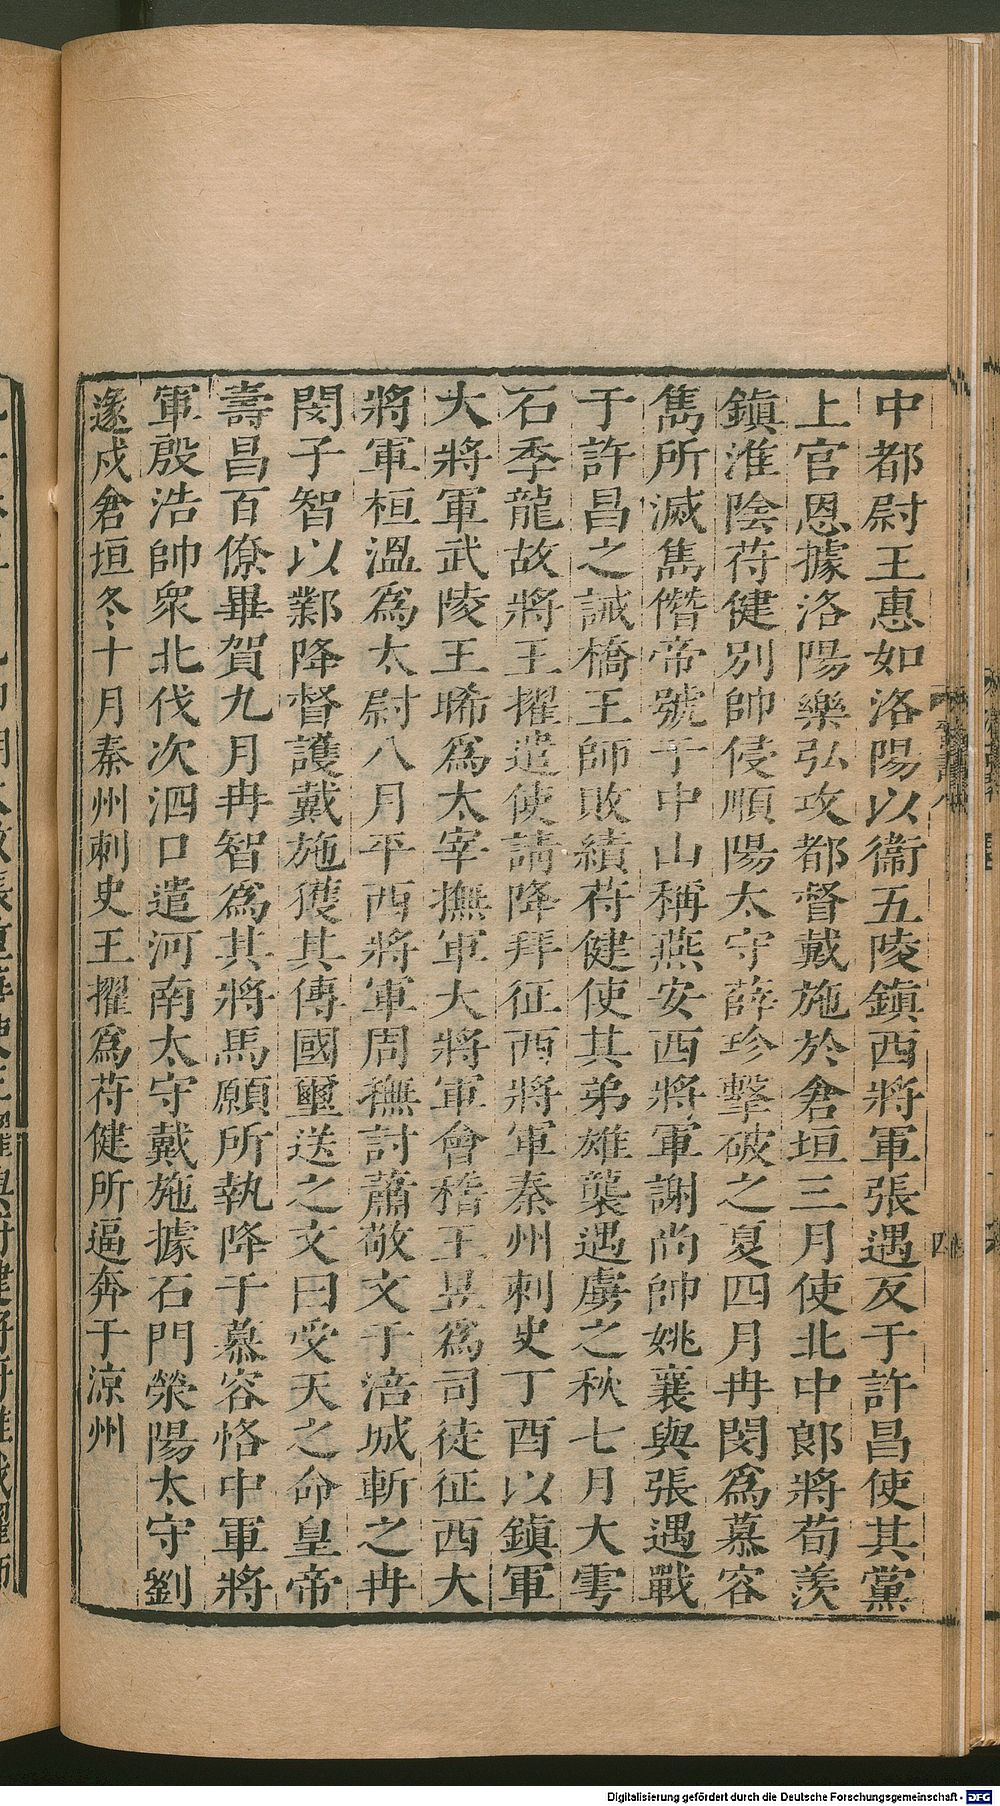 中都尉王惠如洛陽以衞五陵鎮西將軍張遇反于許昌使其黨
上官恩據洛陽樂弘攻都督戴施於倉垣三月使北中郎將荀羨
鎮淮陰苻健別帥侵順陽太守薛珍擊破之夏四月冉閔爲慕容
雋所滅雋僭帝號于中山稱燕安西將軍謝尚帥姚襄與張遇戰
于許昌之誡橋王師敗績苻健使其弟雄襲遇虜之秋七月大雩
石季龍故將王擢遣使請降拜征西將軍秦州刺史丁酉以鎮軍
大將軍武陵王晞爲太宰撫軍大將軍會稽王昱爲司徒征西大
將軍桓溫爲太尉八月平西將軍周撫討蕭敬文于涪城斬之冉
閔子智以鄴降督護戴施獲其傳國璽送之文曰受天之命皇帝
壽昌百僚畢賀九月冉智爲其將馬願所執降于慕容恪中軍將
軍殷浩帥衆北伐次泗口遣河南太守戴施據石門滎陽太守劉
遂戍倉垣冬十月秦州刺史王擢爲苻健所逼奔于涼州
Digitalisierung gefördert durch die Deutsche Forschungsgemeinschaft - DFG